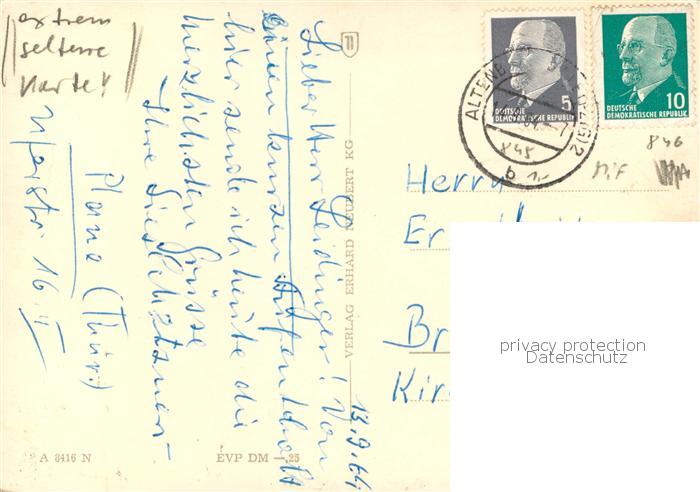 extrem
seltene
Karte!
13.9.64
Lieber Herr Leidinger! Von
einem kurzen Aufenthalt
hier sende ich heute die
herzlichsten Grüsse
Ihre
Plaue (Thür.)
16
VERLAG ERHARD NEUBERT KG
A 8416 N
EVP DM —,25
5
DEUTSCHE
DEMOKRATISCHE REPUBLIK
10
DEUTSCHE
DEMOKRATISCHE REPUBLIK
845
b
846
MiF
Herrn
Er
Br
Kir
privacy protection
Datenschutz